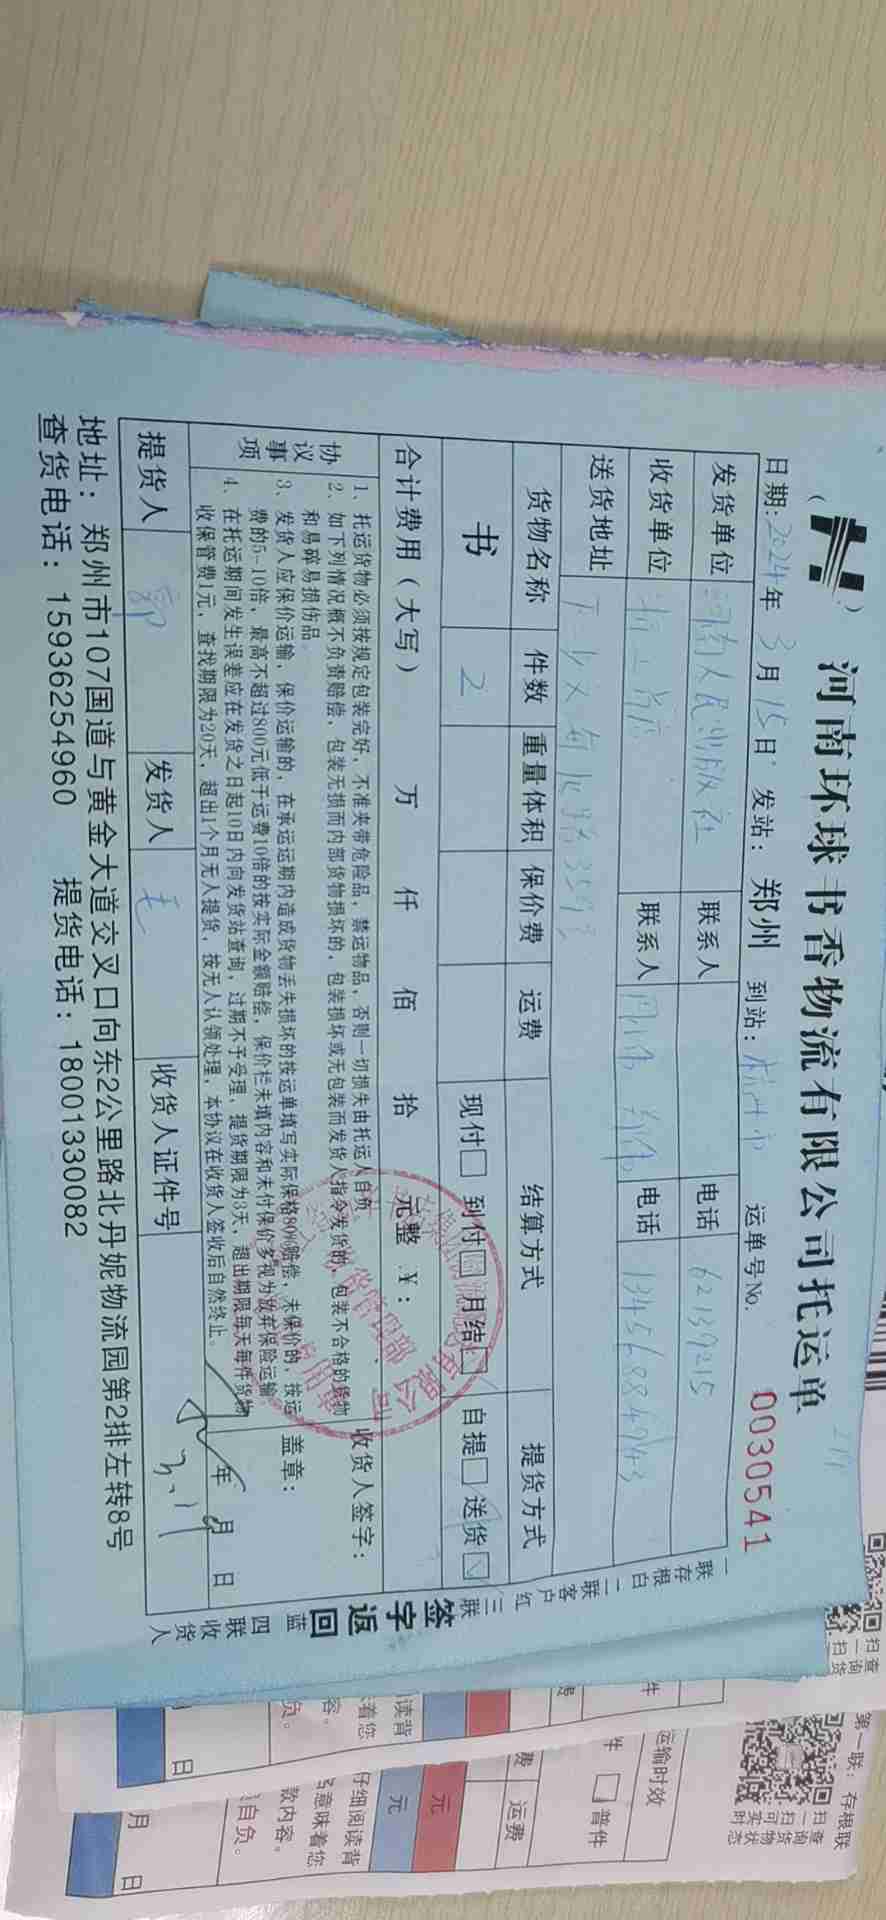 河南环球书香物流有限公司托运单
日期:2024年3月15日 发站:郑州 到站:杭州市 运单号No. 0030541
发货单位 河南人民出版社 联系人 电话 62139215
收货单位 联系人 电话 13456884943
送货地址
货物名称 件数 重量体积 保价费 运费 结算方式 提货方式
书 2 现付 到付 月结 自提 送货
合计费用(大写) 万 仟 佰 拾 元整 ¥:
协议事项
1、托运货物必须按规定包装完好,不准夹带危险品,禁运物品,否则一切损失由托运人自负
2、如下列情况概不负责赔偿,包装无损而内部货物损坏的,包装损坏或无包装而发货人指令发货的,包装不合格的货物
和易碎易损伤品。
3、发货人应保价运输,保价运输的,在承运期内造成货物丢失损坏的按运单填写实际保格80%赔偿,未保价的,按运
费的5-10倍,最高不超过800元低于运费10倍的按实际金额赔偿,保价栏未填内容和未付保价多视为放弃保险运输。
4、在托运期间发生误差应在发货之日起10日内向发货站查询,过期不予受理,提货期限为3天,超出期限每天每件货物
收保管费1元,查找期限为20天,超出1个月无人提货,按无人认领处理,本协议在收货人签收后自然终止。
收货人签字:
盖章:
年 月 日
提货人 郭 发货人 毛 收货人证件号
地址:郑州市107国道与黄金大道交叉口向东2公里路北丹妮物流园第2排左转8号
查货电话:15936254960 提货电话:18001330082
一联存根白 二联客户红 三联签字返回蓝 四联收货人
第一联:存根联
扫一扫查询货
扫一扫可实时
查询货物状态
运输时效
普件
运费
元
元
仔细阅读背
意味着您
款内容。
自负。
月 日